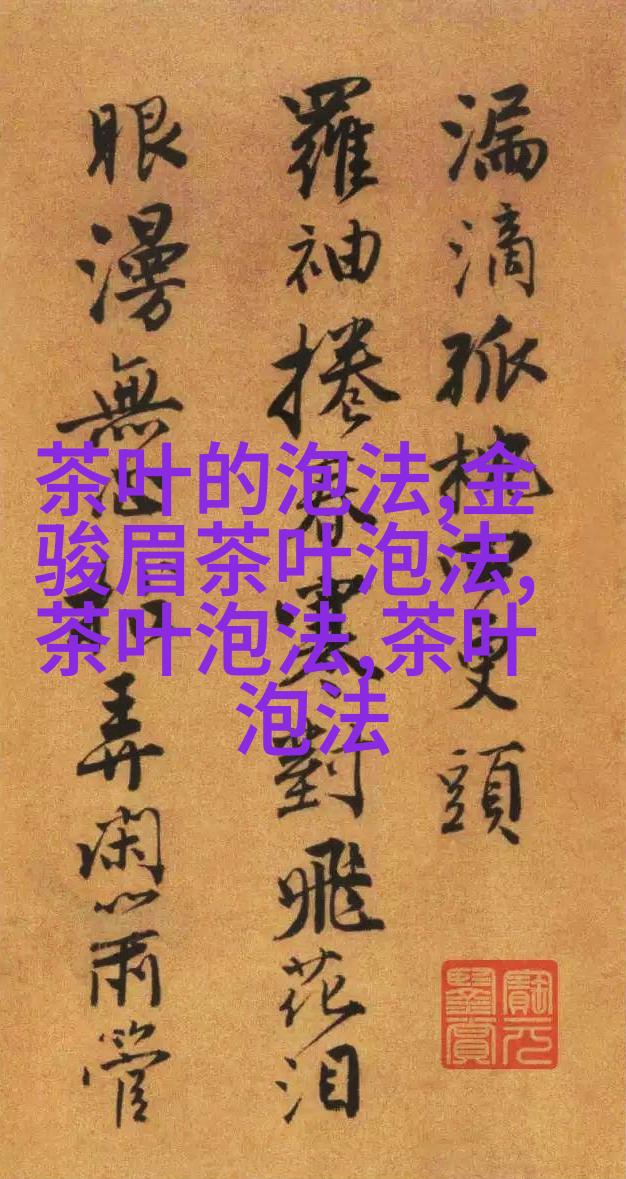 漏滴孤四更頭
羅袖捲春寒對飛花泪
眼漫無心弄閑管
茶叶的泡法,金
骏眉茶叶泡法,
茶叶泡法,茶叶
泡法